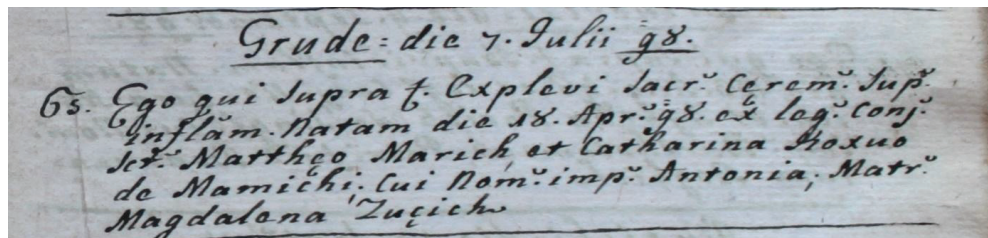 Grude: die 7. Julii 98.
65. Ego qui supra f. Explevi Sacr. Cerem. Sup.
Inflam. Natam die 18. Apr. 98. ex leg. Conj.
Sct. Mattheo Marich et Catharina Koxuo
de Mamichi. Cui Nom. imp. Antonia, Matr.
Magdalena Zucich